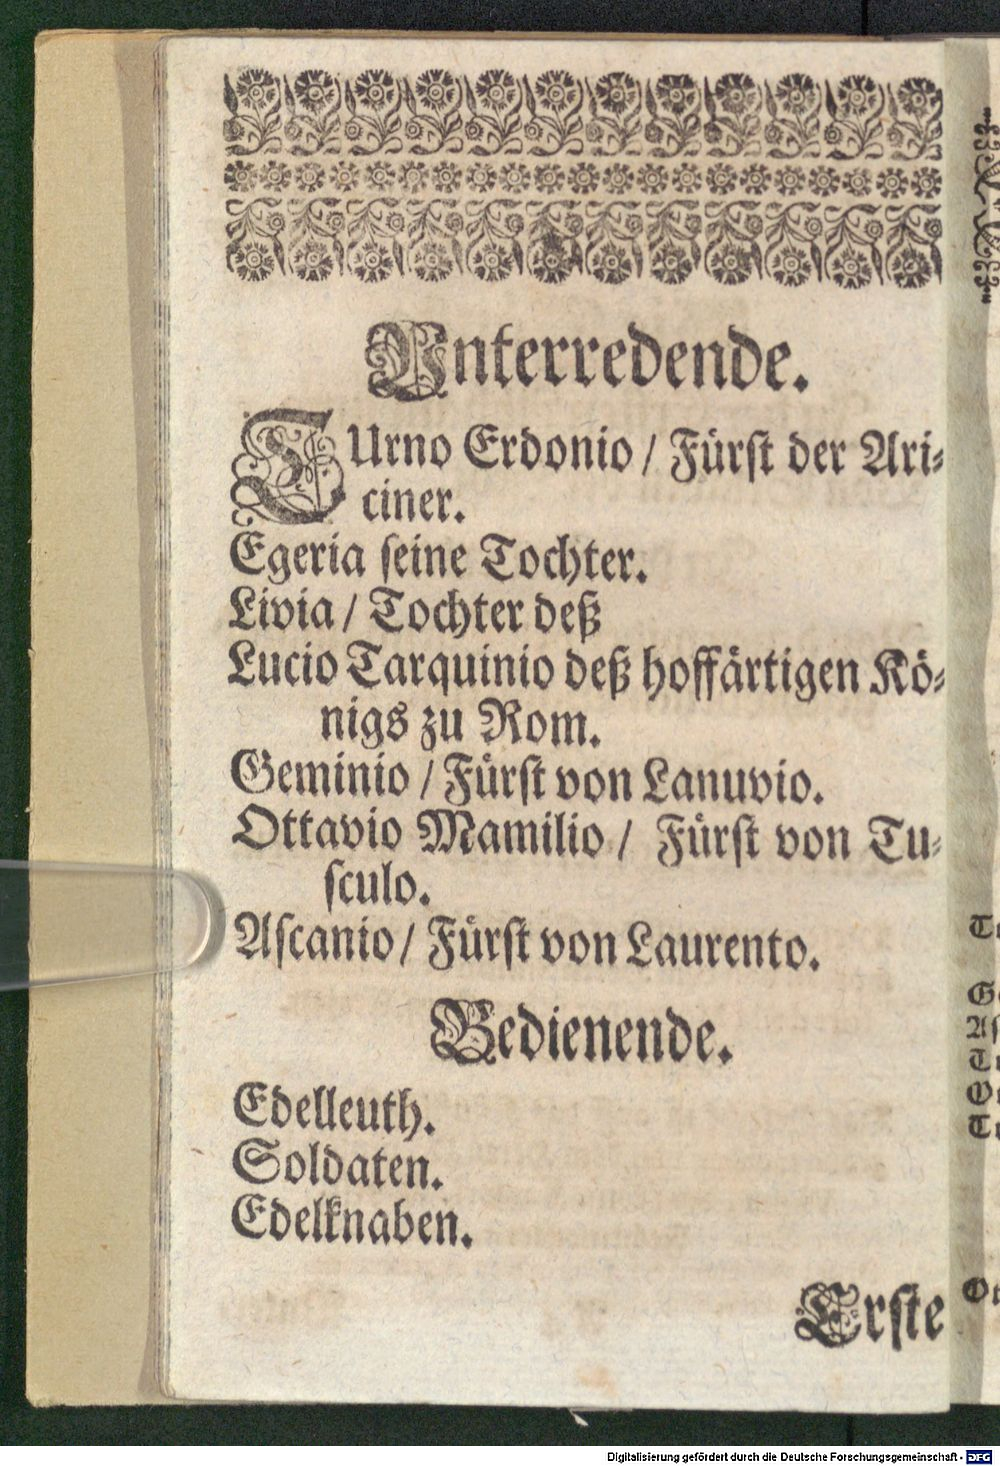 Unterredende.
TUrno Erdonio / Fürſt der Ari⸗
ciner.
Egeria ſeine Tochter.
Livia / Tochter deß
Lucio Tarquinio deß hoffärtigen Kö⸗
nigs zu Rom.
Geminio / Fürſt von Lanuvio.
Ottavio Mamilio / Fürſt von Tu⸗
ſculo.
Aſcanio / Fürſt von Laurento.
Bedienende.
Edelleuth.
Soldaten.
Edelknaben.
Erſte
Digitalisierung gefördert durch die Deutsche Forschungsgemeinschaft - DFG